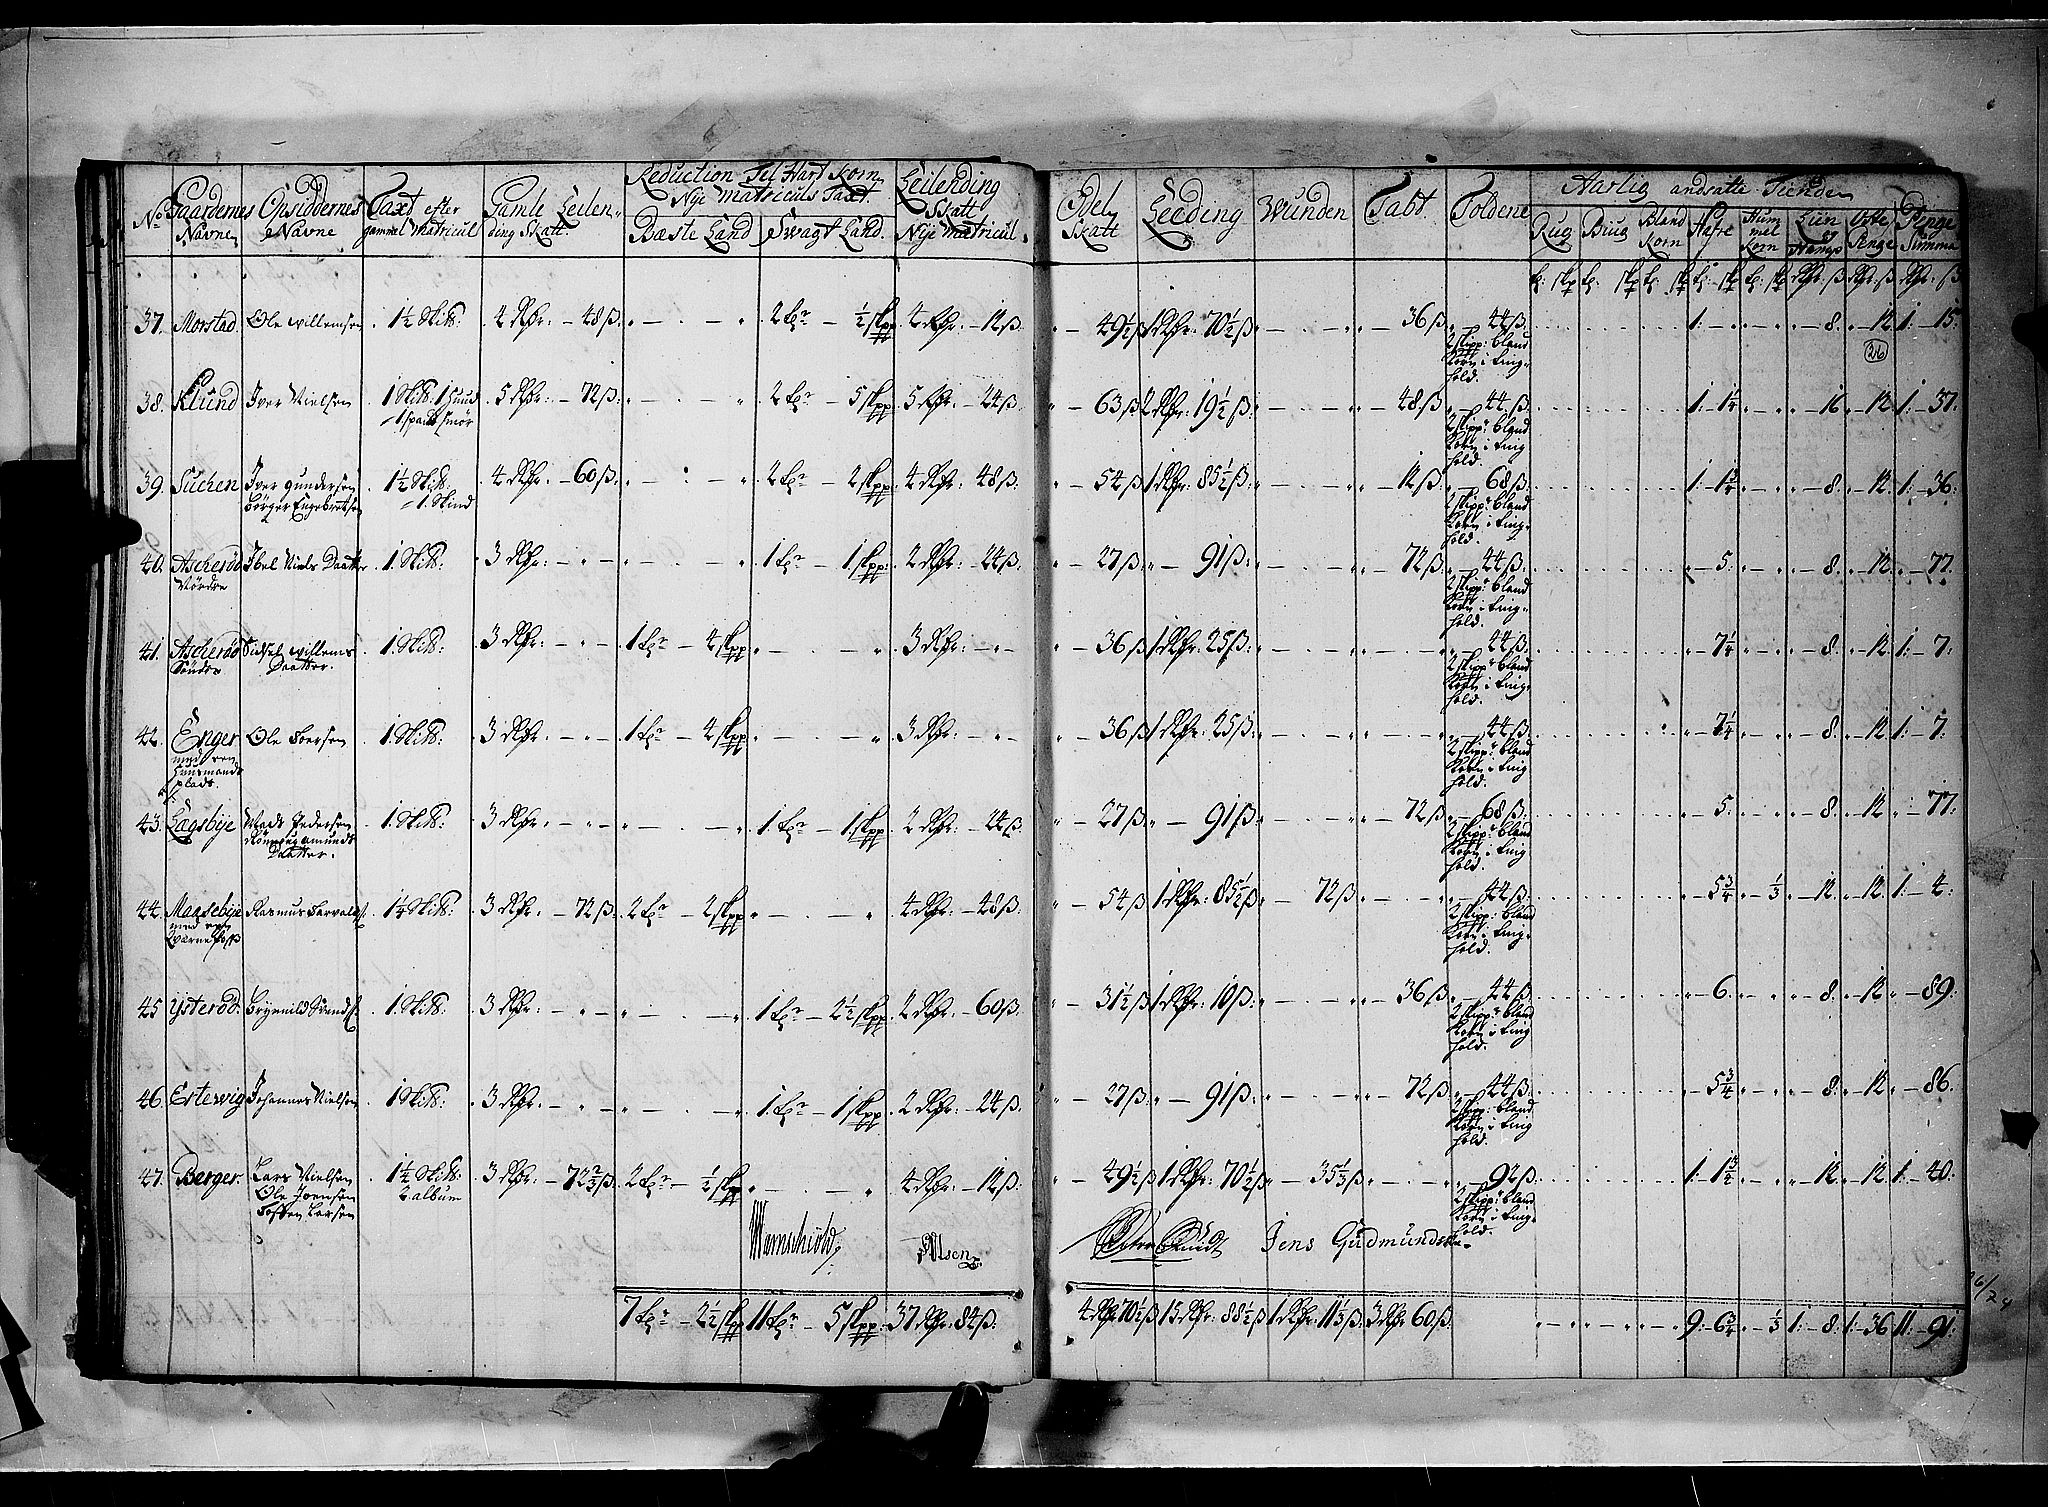 No Gaardenes Navne Opsiddernes Navne Taxt efter gammel Matricul Gamle Leilending Skatt. Reduction Til Hart Korn Nye Matriculs Taxt. Bæste Land Svagt Land. Leilending Skatt Nye Matricul.
Odel Skatt Leeding Wunden Tabt. Foldene Aarlig andsatte Tienden
Rug Biug Bland Korn Hafre Hummel Korn Liin og Hamp Oste Penge Penge Summa
37. Morstad Ole Willemsen 1½ Skib: 4 Rdr: – 48 ß. 2 tr – ½ skpp 2 Rdr: – 12 ß
49½ ß 1 Rdr: 70½ ß 36 ß 44 ß 1: 8. 12. 1: – 15.
2 skipp: bland
Korn i ting-
hold.
26
38. Klund Iver Nielsen 1 Skib: 1 huud 5 Rdr: – 72 ß 2 tr – 5 skpp 5 Rdr: – 24 ß
1 spand smør
63 ß 2 Rdr: 19½ ß 48 ß 44 ß 1: 1¼ 16 12. 1: – 37.
2 skipp: bland
Korn i ting-
hold.
39. Suchen Iver gundersen 1½ Skib: 4 Rdr: – 60 ß 2 tr – 2 skpp 4 Rdr: – 48 ß
Børger Engebretsen 1 Skind
54 ß 1 Rdr: 85½ ß 12 ß 68 ß 1: 1¾ 8. 12. 1: – 36.
2 skipp: bland
Korn i ting-
hold.
40. Ascherød Nørdre Ibel Niels Daatter 1 Skib: 3 Rdr: 1 tr – 1 skpp: 2 Rdr: – 24 ß
27 ß – 91 ß 72 ß 44 ß 5. 8. 12. – 77.
2 skipp: bland
Korn i ting-
hold.
41. Ascherød Søndre Sidsel Willems Daatter. 1 Skib: 3 Rdr: 1 tr – 4 skpp 3 Rdr:
36 ß 1 Rdr: 25 ß 44 ß 7¼ 8. 12. 1: – 7.
2 skipp: bland
Korn i ting-
hold.
42. Enger Ole Joersen 1 Skib: 3 Rdr: 1 tr – 4 skpp 3 Rdr:
med een
huusmands
plads.
36 ß 1 Rdr: 25 ß 44 ß 7¼ 8. 12. 1: – 7.
2 skipp: bland
Korn i ting
hold.
43. Lagsbije Mads Pedersen 1 Skib: 3 Rdr: 1 tr – 1 skpp 2 Rdr: – 24 ß
Daatter.
27 ß – 91 ß 72 ß 68 ß 5. 8. 12. – 77.
2 skipp: bland
Korn i ting
hold.
44. Maasebije Rasmus 1¼ Skib: 3 Rdr: – 72 ß 2 tr – 2 skpp 4 Rdr: – 48 ß
med een
54 ß 1 Rdr: 85½ ß 72 ß 44 ß 5¾ ⅓ 12. 12. 1: – 4.
2 skipp: bland
Korn i ting-
hold.
45 Ysterød. 1 Skib: 3 Rdr: 1 tr – 2½ skpp 2 Rdr: – 60 ß
31½ ß 1 Rdr: 10 ß 36 ß 44 ß 6. 8. 12 – 89.
2 skipp: bland
Korn i ting
hold.
46. Ertewig Johannes Nielsen 1 Skib: 3 Rdr: 1 tr – 1 skpp 2 Rdr: – 24 ß
27 ß – 91 ß 72 ß 44 ß 5¾ 8. 12 – 86.
2 skipp: bland
Korn i ting
hold.
47. Berger. Lars Nielsen 1¼ Skib: 3 Rdr: – 72⅔ ß 2 tr – ½ skpp 4 Rdr: – 12 ß
Ole Joensen 2 album
Larsen
49½ ß 1 Rdr: 70½ ß 35⅓ ß 92 ß 1: 1¾ 12 12 1: – 40.
2 skipp: bland
Korn i ting-
hold.
Olsen
Jens Gudmundsen
7 tr – 2½ skpp 11 tr – 5 skpp: 37 Rdr: 84 ß.
4 Rdr 70½ ß 15 Rdr: 88½ ß 1 Rdr: 11⅓ ß 3 Rdr 60 ß 9: 6¾ ⅓ 1: – 8: 1: – 36 11: – 91.